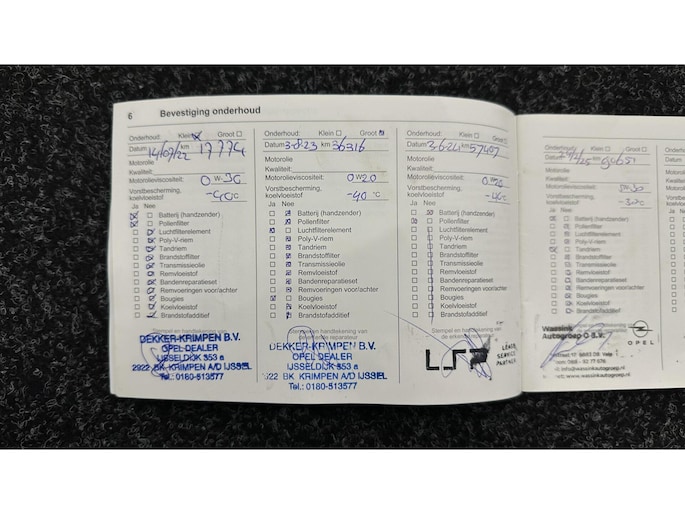 6 Bevestiging onderhoud
Onderhoud: Klein Groot
Datum 14/07/22 km 17774
Motorolie
Kwaliteit:
Motorolieviscositeit: 0 W-30
Vorstbescherming,
koelvloeistof -40°C
Ja Nee
Batterij (handzender)
Pollenfilter
Luchtfilterelement
Poly-V-riem
Tandriem
Brandstoffilter
Transmissieolie
Remvloeistof
Bandenreparatieset
Remvoeringen voor/achter
Bougies
Koelvloeistof
Brandstofadditief
Stempel en handtekening van
DEKKER-KRIMPEN B.V.
OPEL DEALER
IJSSELDIJK 353 a
2922 BK KRIMPEN A/D IJSSEL
Tel.: 0180-513577
Onderhoud: Klein Groot
Datum 3-8-23 km 36316
Motorolie
Kwaliteit:
Motorolieviscositeit: 0W20
Vorstbescherming,
koelvloeistof -40 °C
Ja Nee
Batterij (handzender)
Pollenfilter
Luchtfilterelement
Poly-V-riem
Tandriem
Brandstoffilter
Transmissieolie
Remvloeistof
Bandenreparatieset
Remvoeringen voor/achter
Bougies
Koelvloeistof
Brandstofadditief
DEKKER-KRIMPEN B.V.
OPEL DEALER
IJSSELDIJK 353 a
2922 BK KRIMPEN A/D IJSSEL
Tel.: 0180-513577
Onderhoud: Klein Groot
Datum 3-6-24 km 57407
Motorolie
Kwaliteit:
Motorolieviscositeit: 0W20
Vorstbescherming,
koelvloeistof °C
Ja Nee
Batterij (handzender)
Pollenfilter
Luchtfilterelement
Poly-V-riem
Tandriem
Brandstoffilter
Transmissieolie
Remvloeistof
Bandenreparatieset
Remvoeringen voor/achter
Bougies
Koelvloeistof
Brandstofadditief
SERVICE
PARTNER
Onderhoud: Klein Groot
Datum km
Motorolie
Kwaliteit:
Motorolieviscositeit:
Vorstbescherming,
koelvloeistof
Ja Nee
Batterij (handzender)
Pollenfilter
Luchtfilterelement
Poly-V-riem
Tandriem
Brandstoffilter
Transmissieolie
Remvloeistof
Bandenreparatieset
Remvoeringen voor/achter
Bougies
Koelvloeistof
Brandstofadditief
Wassink
Autogroep
OPEL